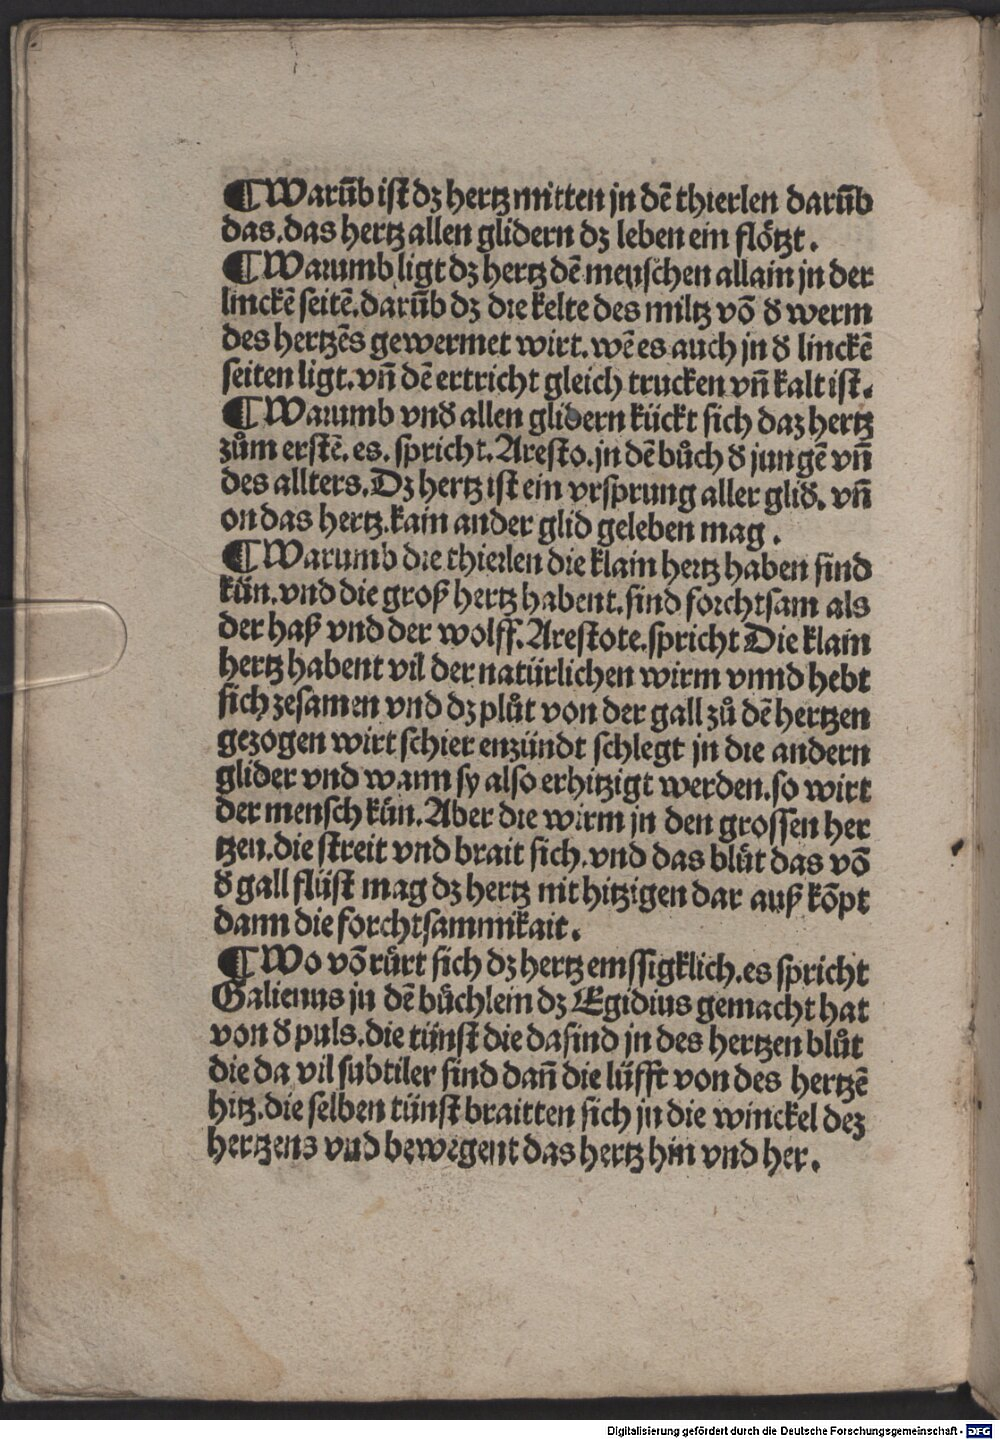 ¶ Warūb ist dz hertz mitten jn dē thierlen darūb
das. das hertz allen glidern dz leben ein flötzt.
¶ Warumb ligt dz hertz dē menschen allain jn der
linckē seitē. darūb dz die kelte des miltz vō đ werm
des hertzēs gewermet wirt. wē es auch jn đ linckē
seiten ligt. vn̄ dē ertricht gleich trucken vn̄ kalt ist.
¶ Warumb vnđ allen glidern kückt sich daz hertz
zům erstē. es. spricht. Aresto. jn dē bůch đ jungē vn̄
des allters. Dz hertz ist ein vrsprung aller gliđ. vn̄
on das hertz. kain ander glid geleben mag.
¶ Warumb die thierlen die klain hertz haben sind
kün. vnd die groß hertz habent. sind forchtsam als
der haß vnd der wolff. Arestote. spricht Die klain
hertz habent vil der natürlichen wirm vnnd hebt
sich zesamen vnd dz plůt von der gall zů dē hertzen
gezogen wirt schier enzündt schlegt jn die andern
glider vnd wann sy also erhitzigt werden. so wirt
der mensch kün. Aber die wirm jn den grossen her
tzen. die streit vnd brait sich. vnd das blůt das vō
đ gall flüst mag dz hertz nit hitzigen dar auß kōpt
dann die forchtsamnikait.
¶ Wo vō rürt sich dz hertz emssigklich. es spricht
Galienus jn dē büchlein dz Egidius gemacht hat
von đ puls. die tünst die da sind jn des hertzen blůt
die da vil subtiler sind dan̄ die lüfft von des hertzē
hitz. die selben tünst braitten sich jn die winckel dez
hertzens vnd bewegent das hertz hin vnd her.
Digitalisierung gefördert durch die Deutsche Forschungsgemeinschaft - DFG